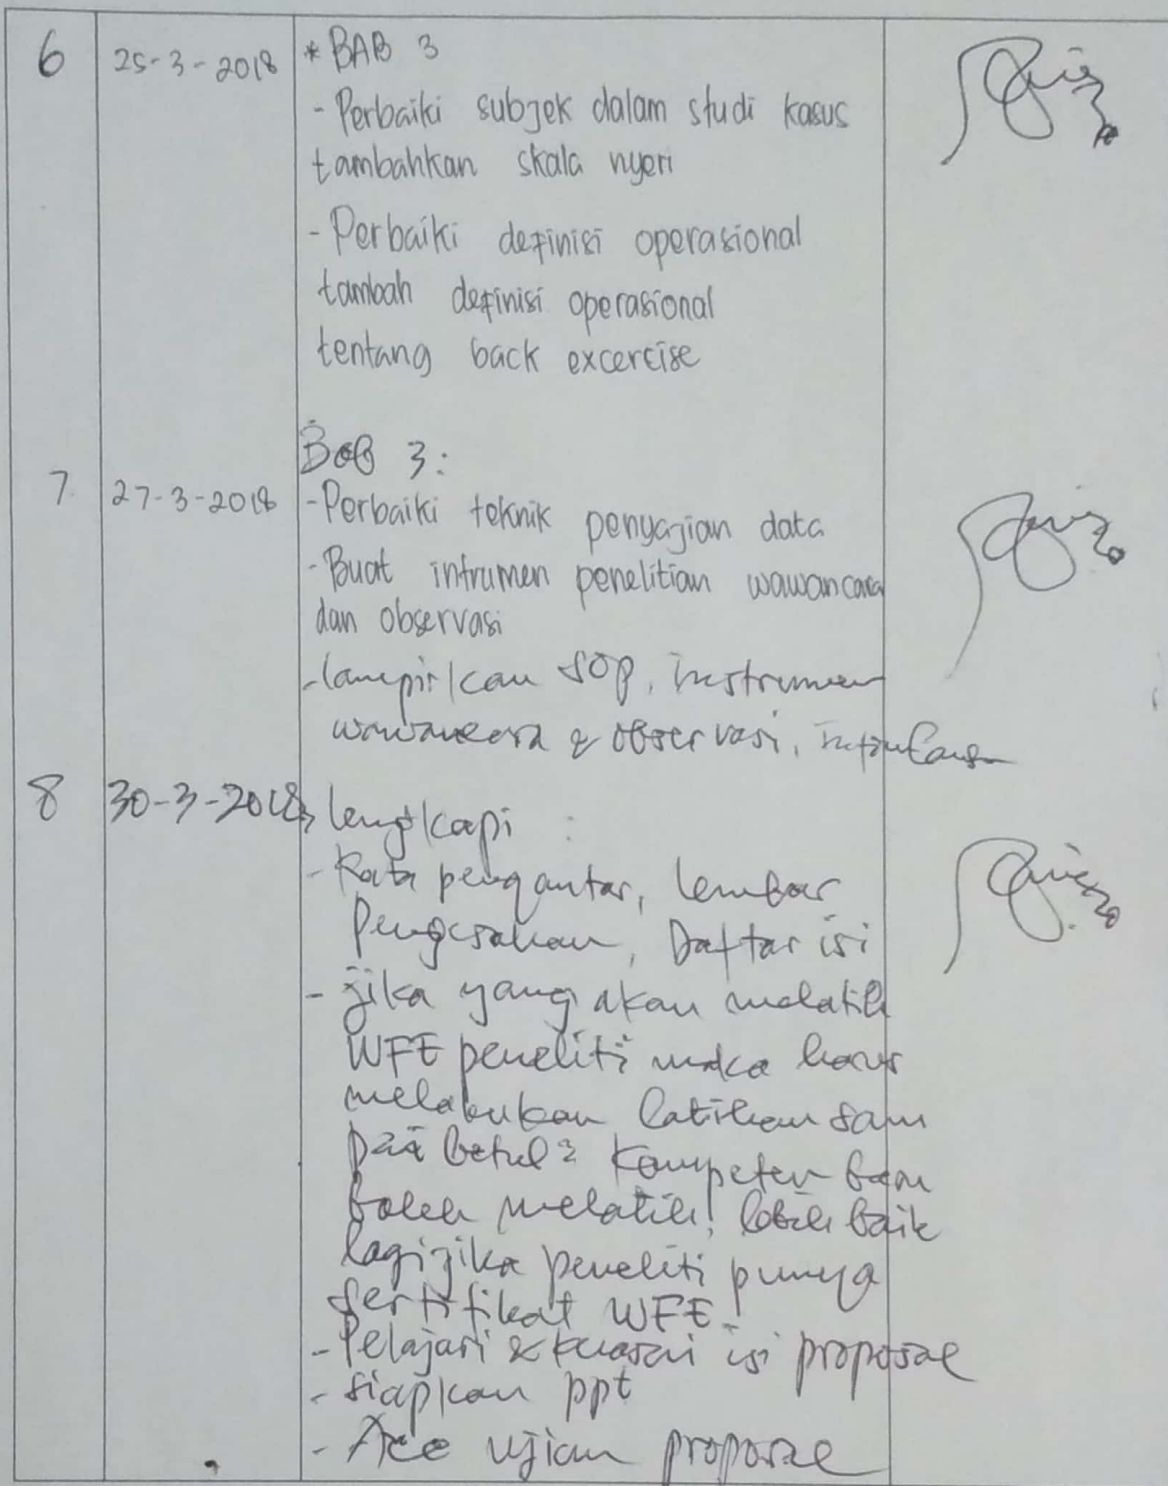 6 25-3-2018 * BAB 3
- Perbaiki subjek dalam studi kasus
tambahkan skala nyeri
- Perbaiki definisi operasional
tambah definisi operasional
tentang back excercise
Bab 3:
7 27-3-2018 - Perbaiki teknik penyajian data
- Buat intrumen penelitian wawancara
dan observasi
- lampirkan SOP, instrumen
wawancara & observasi,
8 30-3-2018 lengkapi :
- Kata pengantar, lembar
pengesahan, Daftar isi
- jika yang akan melatih
WFE peneliti maka harus
melakukan latihan sam
pai betul2 kompeten baru
boleh melatih! lebih baik
lagi jika peneliti punya
sertifikat WFE
- Pelajari & kuasai isi proposal
- siapkan ppt
- Acc ujian proposal